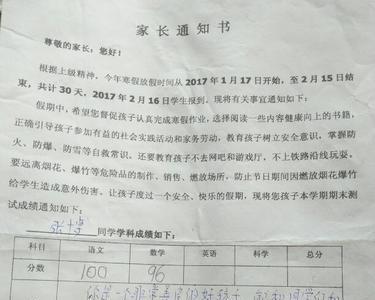 家长通知书
尊敬的家长：您好！
根据上级精神，今年寒假放假时间从 2017 年 1 月 17 日开始，至 2 月 15 日结
束，共计 30 天，2017 年 2 月 16 日学生报到。现将有关事宜通知如下：
假期中，希望您督促孩子认真完成寒假作业，选择阅读一些内容健康向上的书籍，
正确引导孩子参加有益的社会实践活动和家务劳动，教育孩子树立安全意识，掌握防
火、防爆、防雪等自救常识。还要教育孩子不去网吧和游戏厅，不上铁路沿线玩耍。
要远离烟花、爆竹等危险品的制作、销售、燃放场所，防止节日期间因燃放烟花爆竹
给学生造成意外伤害。让孩子度过一个安全、快乐的假期，现将您孩子本学期期末测
试成绩通知如下：
同学学科成绩如下：
科目 语文 数学 英语 科学 总分
分数 100 96
你是一个非常善良的好孩子